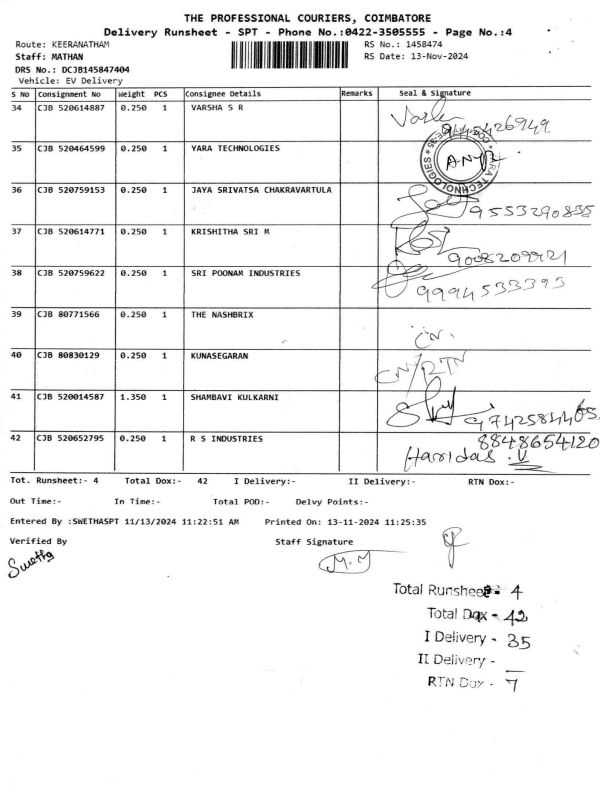 THE PROFESSIONAL COURIERS, COIMBATORE
Delivery Runsheet - SPT - Phone No.:0422-3505555 - Page No.:4
Route: KEERANATHAM RS No.: 1458474
Staff: MATHAN RS Date: 13-Nov-2024
DRS No.: DCJB145847404
Vehicle: EV Delivery
S No Consignment No Weight PCS Consignee Details Remarks Seal & Signature
34 CJB 520614887 0.250 1 VARSHA S R
35 CJB 520464599 0.250 1 YARA TECHNOLOGIES
YARA TECHNOLOGIES
36 CJB 520759153 0.250 1 JAYA SRIVATSA CHAKRAVARTULA
9553290835
37 CJB 520614771 0.250 1 KRISHITHA SRI M
38 CJB 520759622 0.250 1 SRI POONAM INDUSTRIES
9994533393
39 CJB 80771566 0.250 1 THE NASHBRIX
CN.
40 CJB 80830129 0.250 1 KUNASEGARAN
CN/RTN
41 CJB 520014587 1.350 1 SHAMBAVI KULKARNI
42 CJB 520652795 0.250 1 R S INDUSTRIES 8848654120
Haridas .V
Tot. Runsheet:- 4 Total Dox:- 42 I Delivery:- II Delivery:- RTN Dox:-
Out Time:- In Time:- Total POD:- Delvy Points:-
Entered By :SWETHASPT 11/13/2024 11:22:51 AM Printed On: 13-11-2024 11:25:35
Verified By Staff Signature
Swetha
M.M
Total Runsheet - 4
Total Dox - 42
I Delivery - 35
II Delivery -
RTN Dox - 7